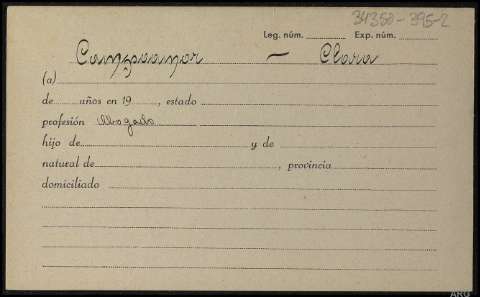 34350-395-2
Leg. núm. Exp. núm.
Campoamor - Clara
(a)
de años en 19, estado
profesión Abogado
hijo de y de
natural de, provincia
domiciliado
ARG